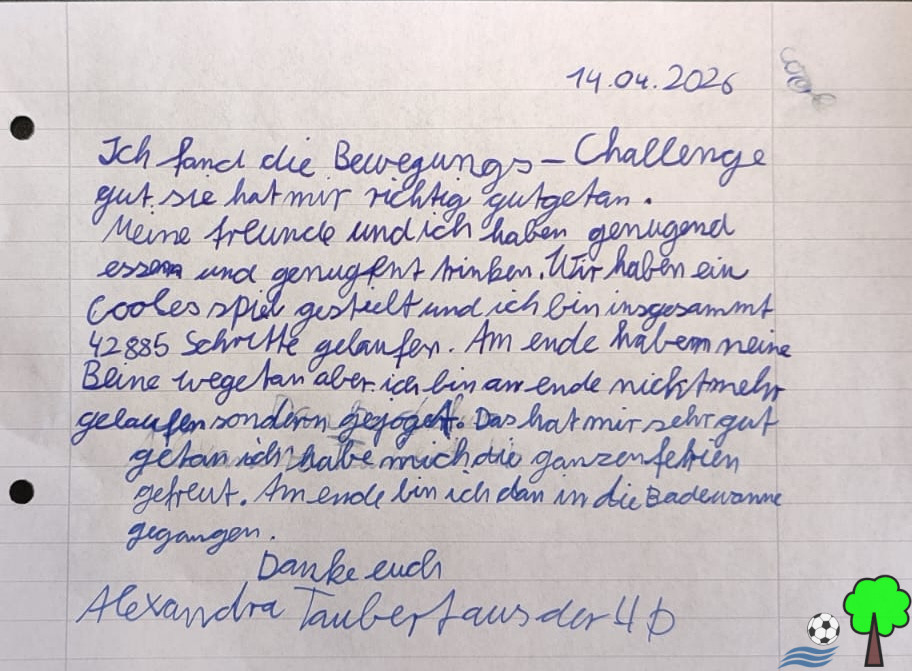 14.04.2026
Ich fand die Bewegungs-Challenge
gut sie hat mir richtig gutgetan.
Meine freunde und ich haben genugend
essen und genugent trinken. Wir haben ein
Cooles spiel gespielt und ich bin insgesammt
42885 Schritte gelaufen. Am ende haben meine
Beine wegetan aber ich bin am ende nicht mehr
gelaufen sondern gejoget. Das hat mir sehr gut
getan ich habe mich die ganzen ferien
gefreut. Am ende bin ich dan in die Badewanne
gegangen.
Danke euch
Alexandra Taubert aus der 4b